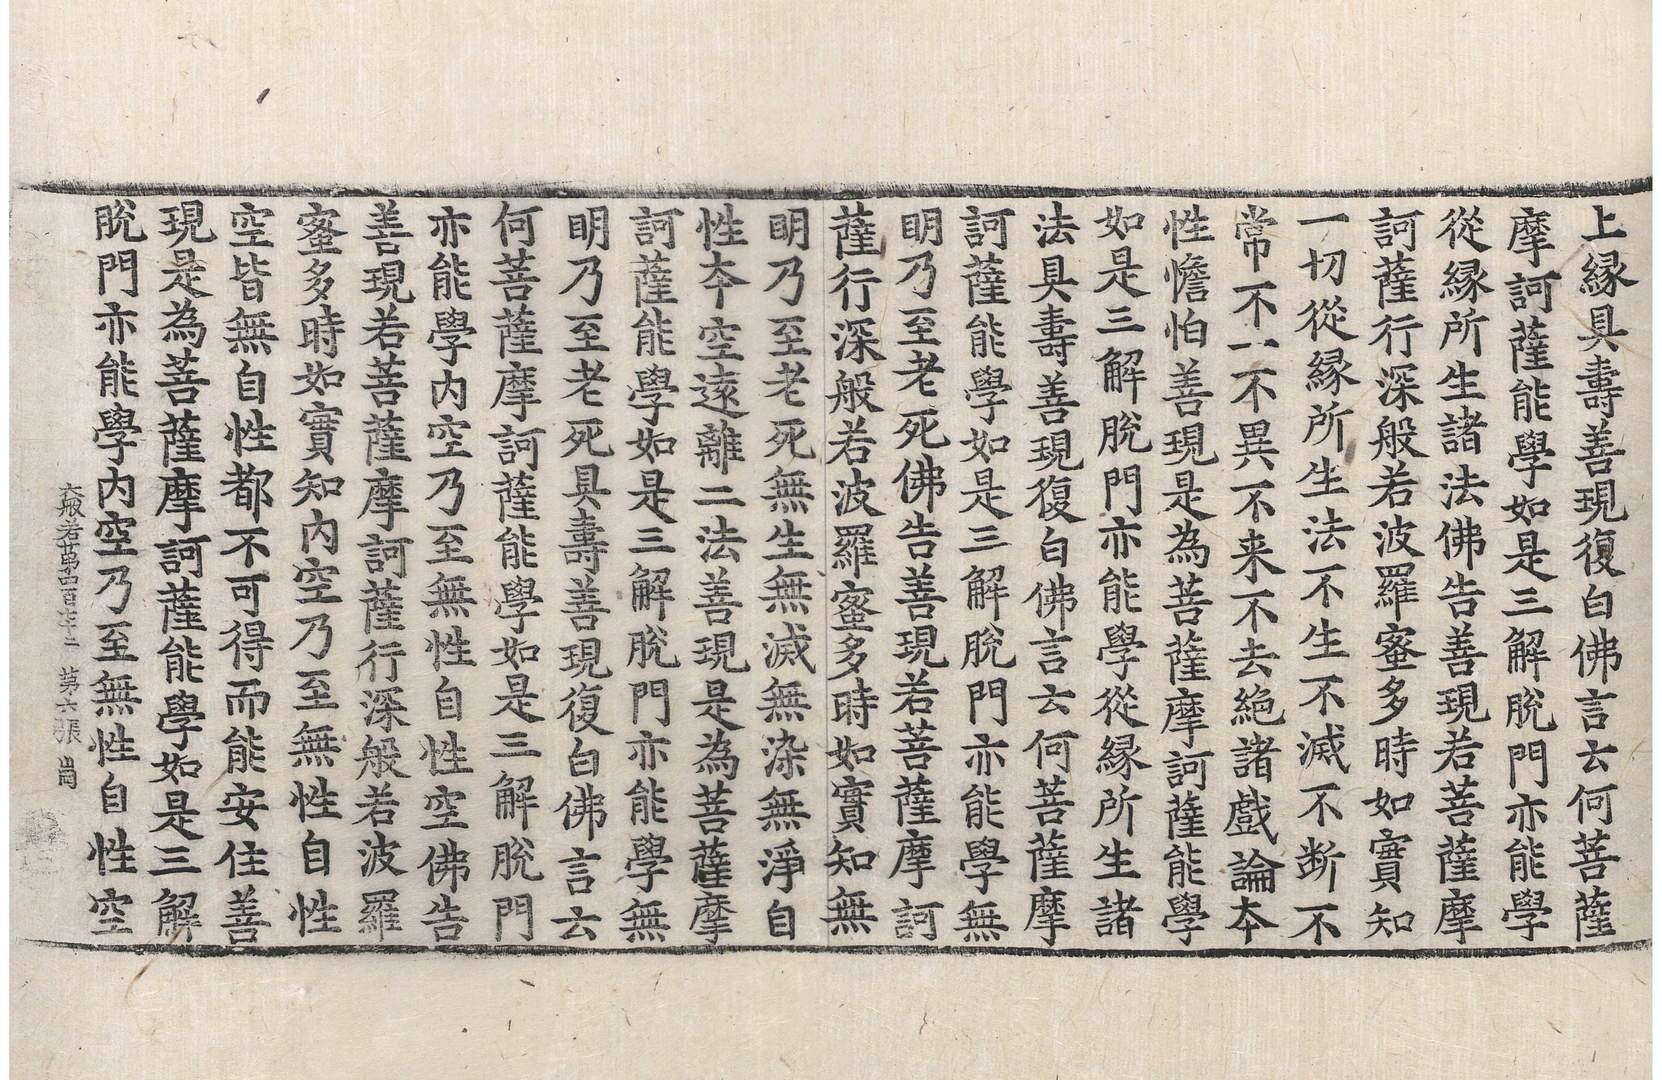 上縁具壽善現復白佛言云何菩薩
摩訶薩能學如是三解脫門亦能學
從縁所生諸法佛告善現若菩薩摩
訶薩行深般若波羅蜜多時如實知
一切從縁所生法不生不滅不斷不
常不一不異不来不去絶諸戲論本
性憺怕善現是為菩薩摩訶薩能學
如是三解脫門亦能學從縁所生諸
法具壽善現復白佛言云何菩薩摩
訶薩能學如是三解脫門亦能學無
明乃至老死佛告善現若菩薩摩訶
薩行深般若波羅蜜多時如實知無
明乃至老死無生無滅無染無淨自
性本空遠離二法善現是為菩薩摩
訶薩能學如是三解脫門亦能學無
明乃至老死具壽善現復白佛言云
何菩薩摩訶薩能學如是三解脫門
亦能學內空乃至無性自性空佛告
善現若菩薩摩訶薩行深般若波羅
蜜多時如實知內空乃至無性自性
空皆無自性都不可得而能安住善
現是為菩薩摩訶薩能學如是三解
脫門亦能學內空乃至無性自性空
大般若第四百 第六張